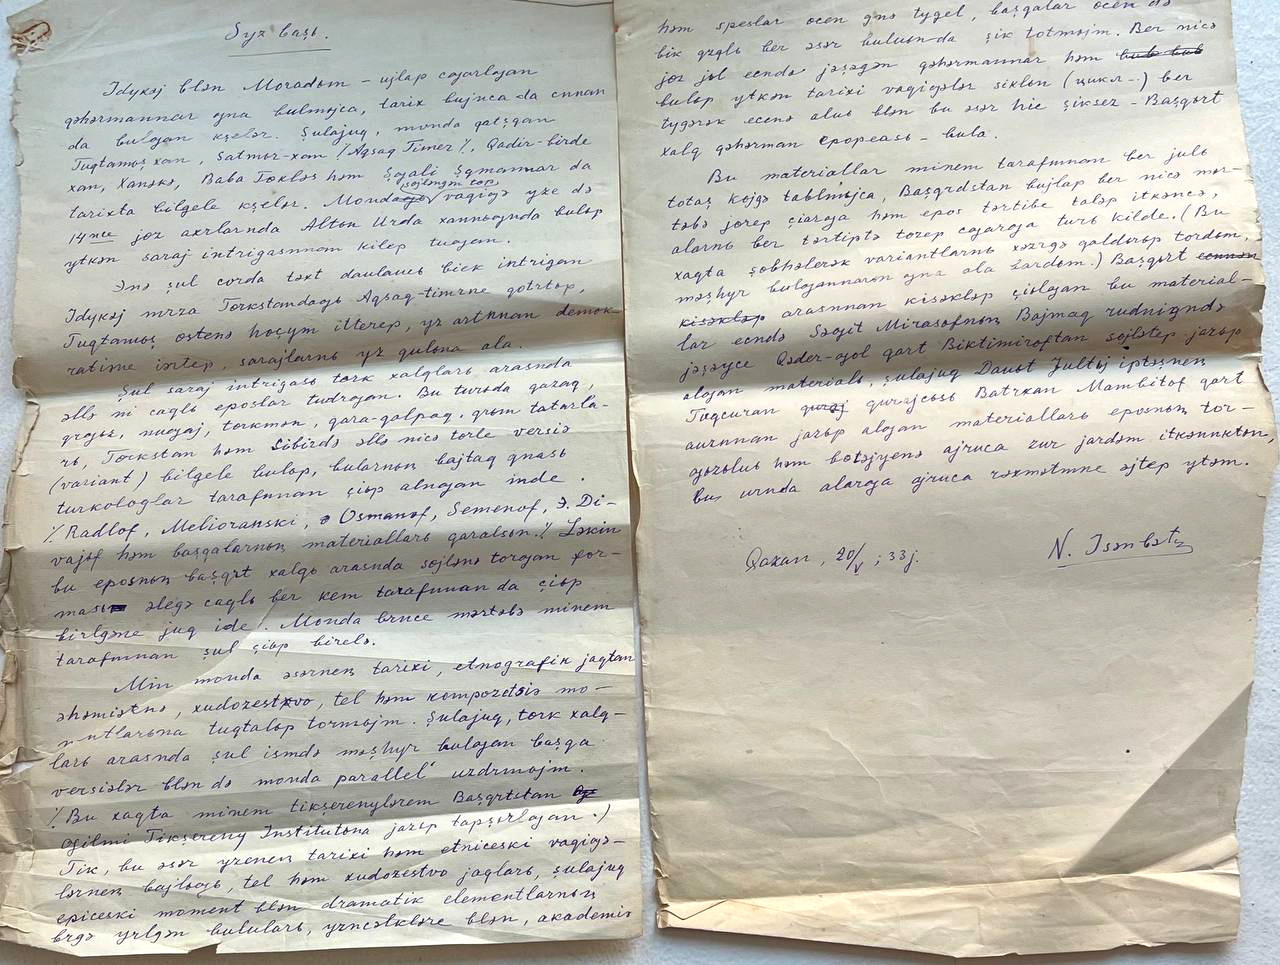 Syz başь.
Idykəj blən Moradьm – ujlap cьgarьlgan
qəhərmannar gьna bulmьjca, tarix bujьnca da cьnnan
da bulgan kşelər. Şulajuq, monda qatşqan
Tuqtamьş xan, Satmьr-xan /Aqsaq Timer/, Qadir-birde
xan, Xanəkə, Baba Tɵkləs həm Şagali Şqmannar da
tarixta bilgele kşelər. Monda səjləngən cop vaqigə yze də
14nce jɵz axrlarьnda Altьn Urda xannьgьnda bulьp
ytkən saraj intrigasьnnan kilep tugan.
Ənə şul corda təxt daulaucь biek intrigan
Idykəj mrza Tɵrkstandagь Aqsaq-timrne qotrtьp,
Tuqtamьş ɵstenə hoçym itterep, yz artьnnan demok-
ratime iərtep, sarajlarnь yz qulьna ala.
Şul saraj intrigasь tɵrk xalqlarь arasьnda
əllə ni caqlь eposlar tudrgan. Bu turьda qazaq,
qrgьz, nugaj, tɵrkmən, qara-qalpaq, qrьm tatarla-
rь, Tɵrkstan həm Sibirdə əllə nicə tɵrle versiə
(variant) bilgele bulьp, bularnьꞑ bajtaq qnasь
turkologlar tarafьnnan çiьp alьngan inde.
/. Radlof, Melioranski, Osmanof, Semenof, Э. Di-
vajef həm başqalarnьꞑ materiallarь qaralsьn./ Ləkin
bu eposnьꞑ başqrt xalqь arasьnda sɵjlənə torgan for-
masь əlegə caqlь ber kem tarafьnnan da çiьp
birlgəne juq ide. Monda brnce mərtəbə minem
tarafьmnan şul çiьp birelə.
Min monda əsərneꞑ tarixi, etnografik jaqtan
əhəmiətnə, xudozestvo, tel həm kompozitsiə mo-
mentlarьna tuqtalьp tormьjm. Şulajuq, tɵrk xalq-
larь arasьnda şul ismdə məşhyr bulgan başqa
versiələr blən də monda parallel' uzdrmьjm.
/. Bu xaqta minem tikşerenylərem Başqrtstan
Gilmi Tikşereny Institutьna jazьp tapşьrlgan./
Tik, bu əsər yzeneꞑ tarixi həm etniceski vaqigə-
lərneꞑ bajlьgь, tel həm xudozestvo jaqlarь, şulajuq
epiceski moment blən dramatik elementlarnьꞑ
brgə yrlgən bululərь, yzncəlekləre blən, akademis
həm speslar ɵcen gnə tygel, başqalar ɵcen də
bik qzqlь ber əsər bulьunda şik totmьjm. Ber nicə
jɵz jьl ecndə jəşəgən qəhərmannar həm
bulьp ytkən tarixi vaqigələr siklьn (цикл–) ber
tygərək ecenə alu blən bu əsər hic şiksez – Başqort
xalq qəhərman epopeasь – bula.
Bu materiallar minem tarafьmnan ber julь
totaş kɵjgə tablmьjca, Başqrdstan bujlap ber nicə mər-
təbə jɵrep çiarga həm epos tərtibe taləp itkəncə,
alarnь ber tərtiptə tɵzep cьgarga turь kilde. (Bu
xaqta şɵbhəlerək variantlarnь xəzrgə qaldьrьp tordьm,
məşhyr bulgannarьn gьna ala bardьm.) Başqort
arasьnnan kisəkləp çiьlgan bu material-
lar ecndə Səgit Mirasofnьꞑ Bajmaq rudnigьnda
jəşəyce Qəder-gol qart Biktimiroftan sɵjlətep jazьp
algan materialь, şulajuq Daut Jultьj iptəşneꞑ
Tuqcuran qurajcьsь Batrxan Mambitof qart
auzьnnan jazьp algan materiallarь eposnьꞑ tor-
gozolub həm bɵtəjyenə ajruca zur jardəm itkənnktən,
bu urnda alarga ajruca rəxmətmne əjtep ytəm.
Qazan, 20/V, 33j.
N. Isənbət